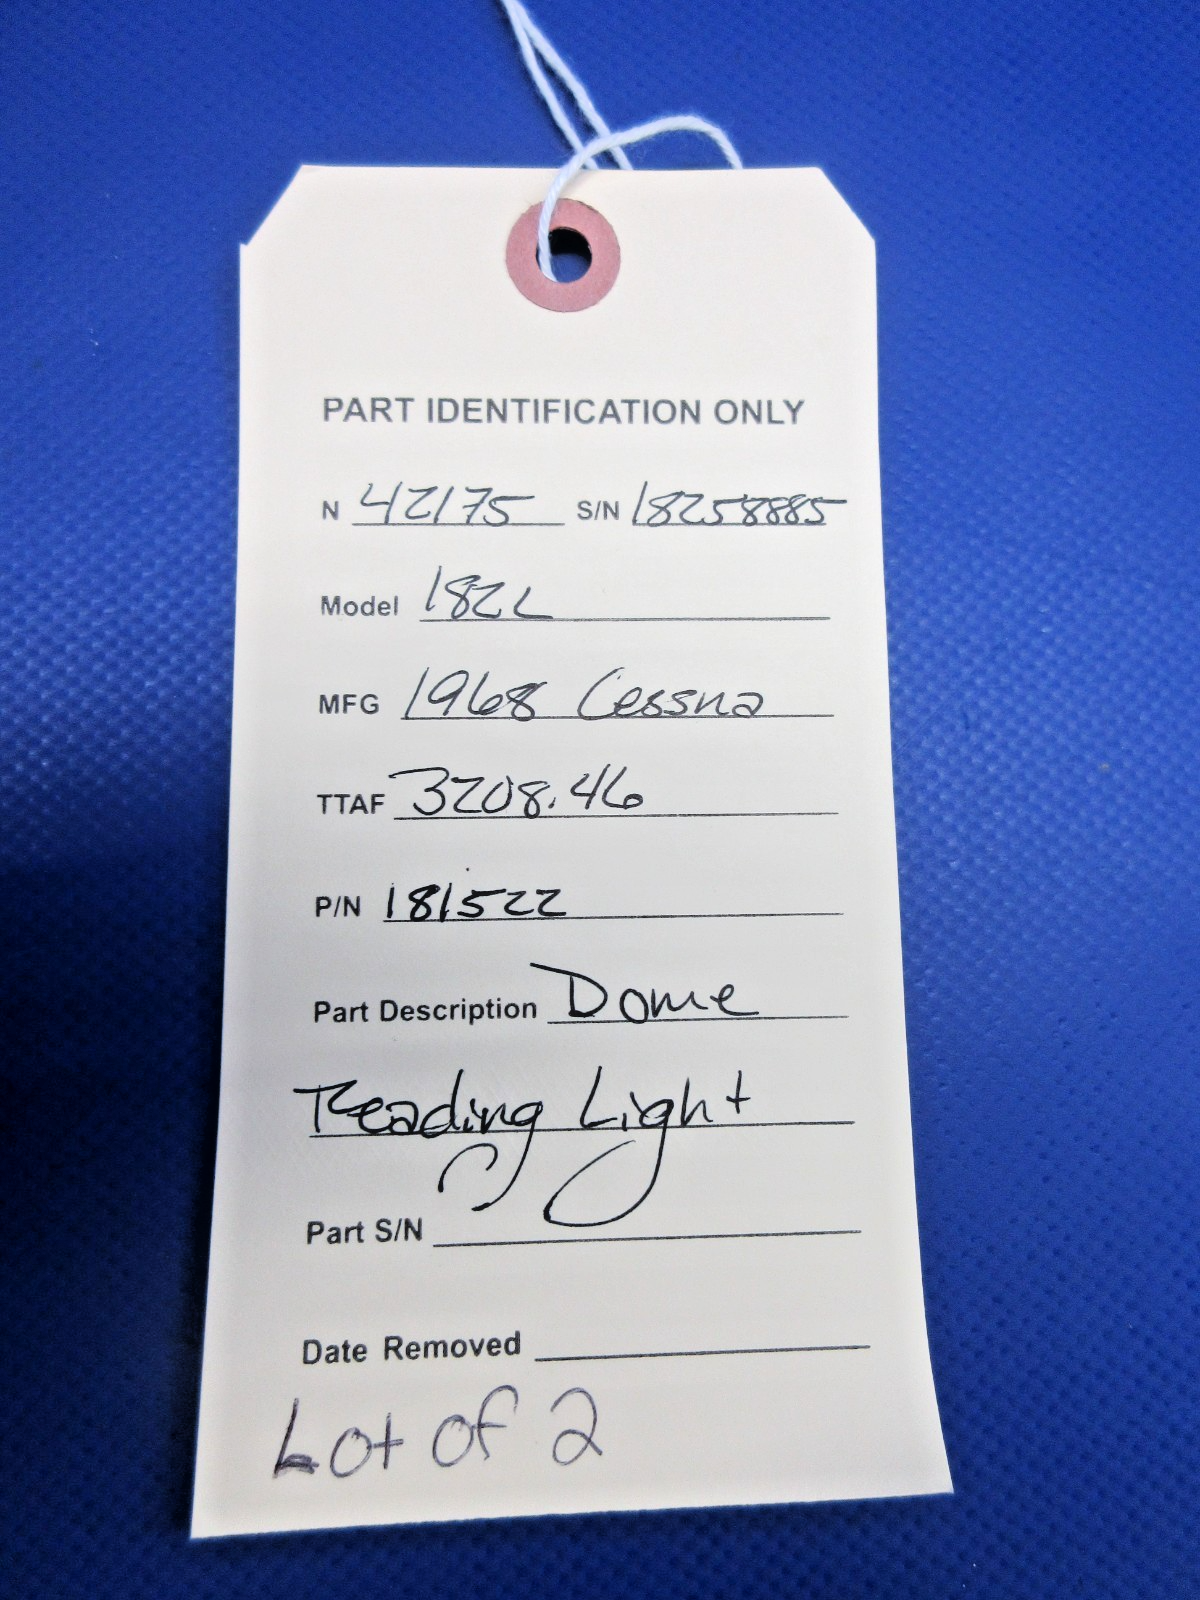 PART IDENTIFICATION ONLY
N 42175 S/N 18258885
Model 182L
MFG 1968 Cessna
TTAF 3208.46
P/N 181522
Part Description Dome
Reading Light
Part S/N
Date Removed
Lot of 2